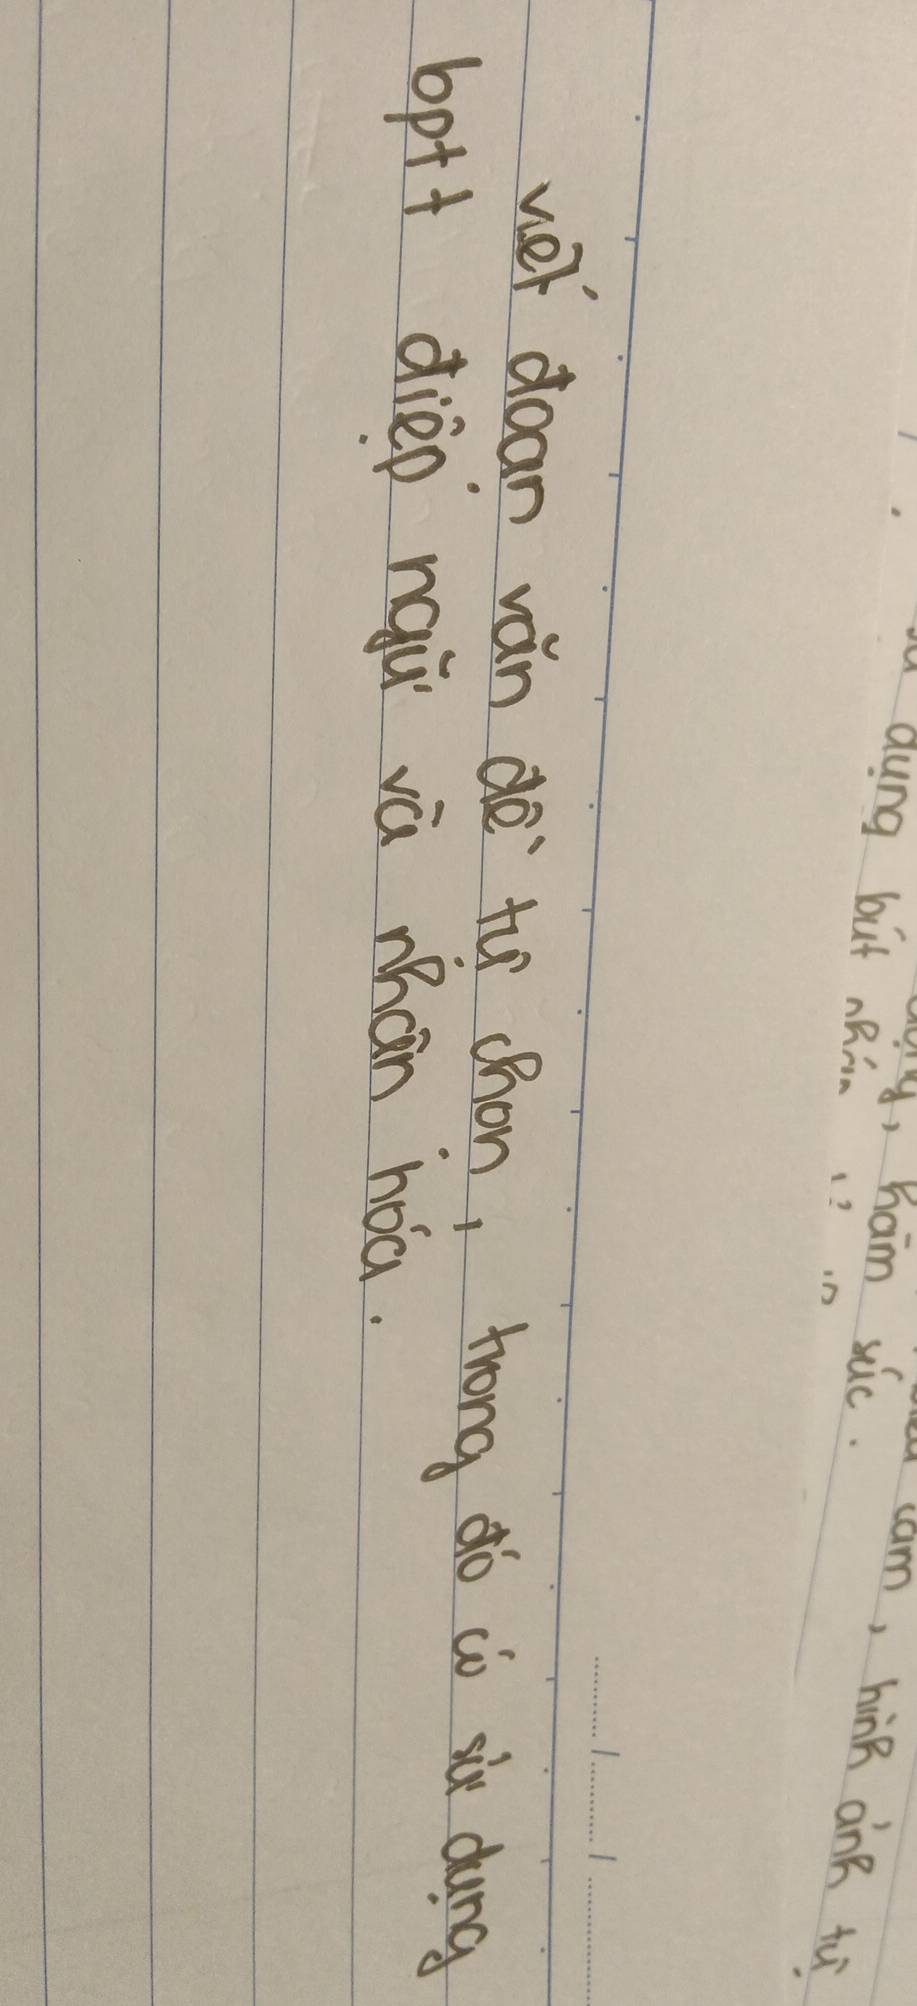 dụng, hàm
cảm, hình ảnh tự
dụng bút nhân
súc.
viết đoạn văn đề tự chọn, trong đó có sử dụng
bptt điệp ngữ và nhân hóa.